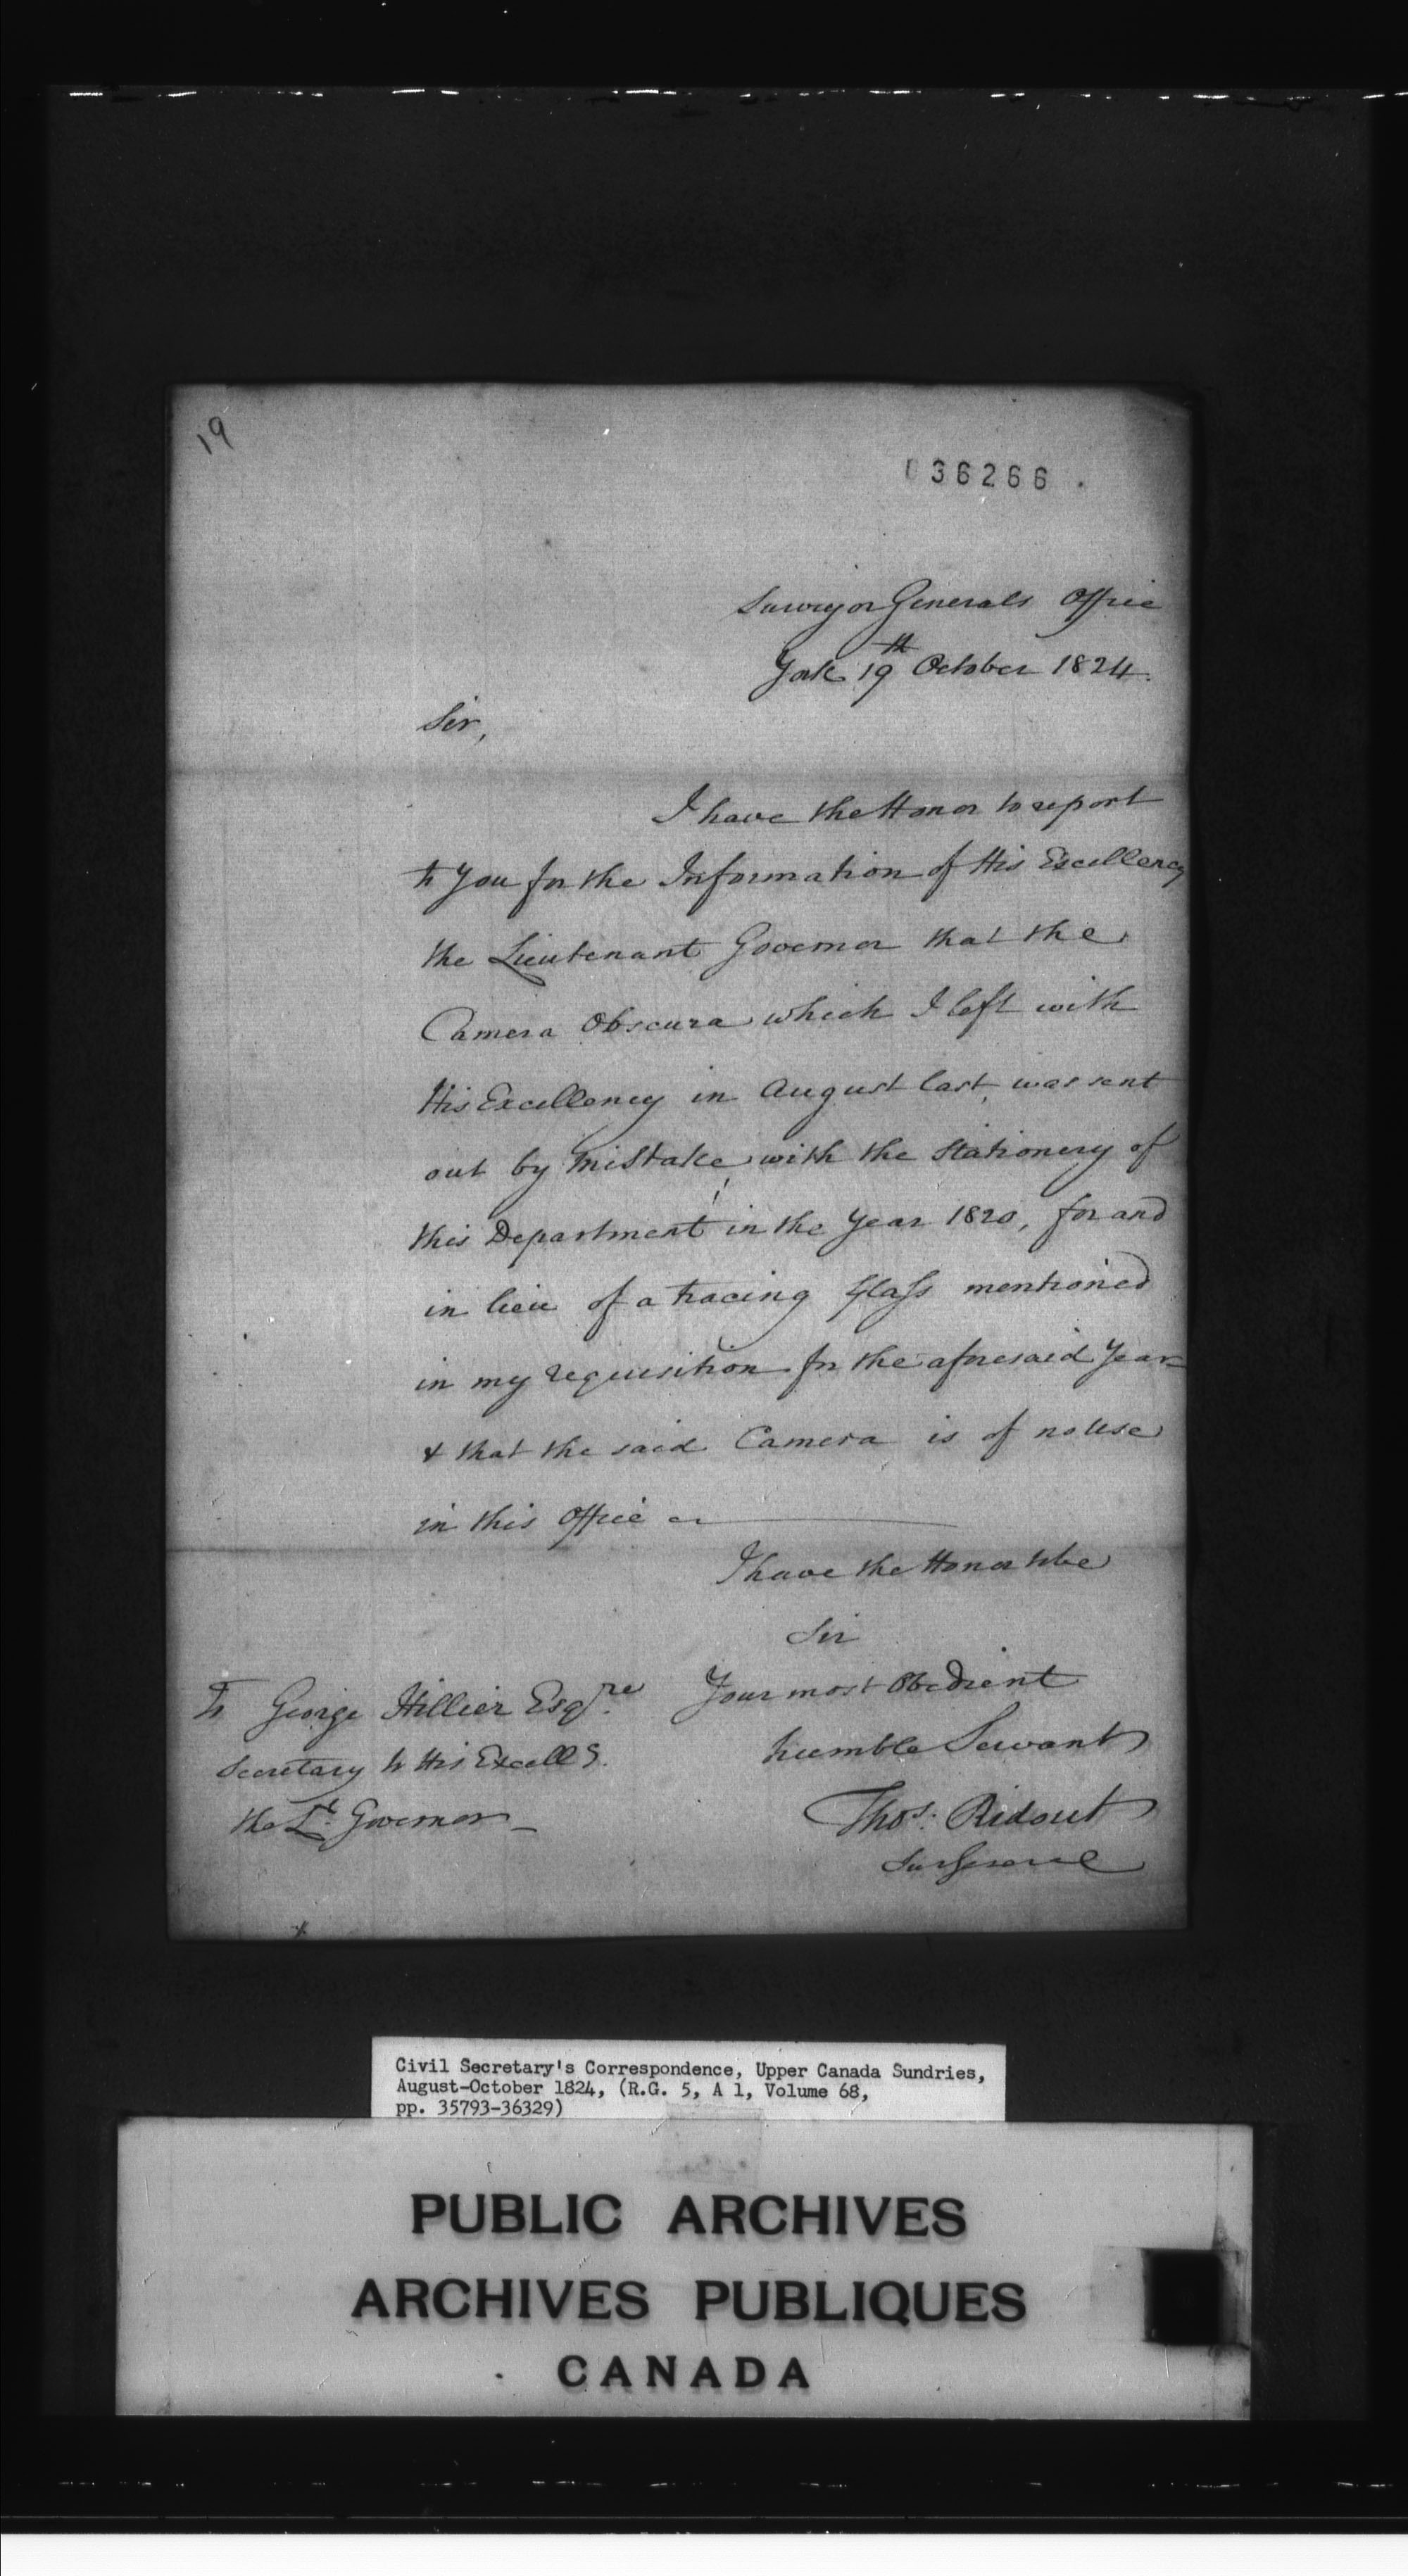 19
036266.
Surveyor Generals Office
York 19th October 1824.
Sir,
I have the Honor to report
to You for the Information of His Excellency
the Lieutenant Governor that the
Camera Obscura which I left with
His Excellency in August last, was sent
out by mistake, with the Stationery of
this Department in the Year 1820, for and
in lieu of a tracing Glass mentioned
in my requisition for the aforesaid Year
& that the said Camera is of no use
in this Office
I have the Honor to be
Sir
Your most Obedient
humble Servant
Thos. Ridout
Sur General
To George Hillier Esqre.
Secretary to His Excelly.
the Lt. Governor
Civil Secretary's Correspondence, Upper Canada Sundries,
August-October 1824, (R.G. 5, A 1, Volume 68,
pp. 35793-36329)
PUBLIC ARCHIVES
ARCHIVES PUBLIQUES
CANADA